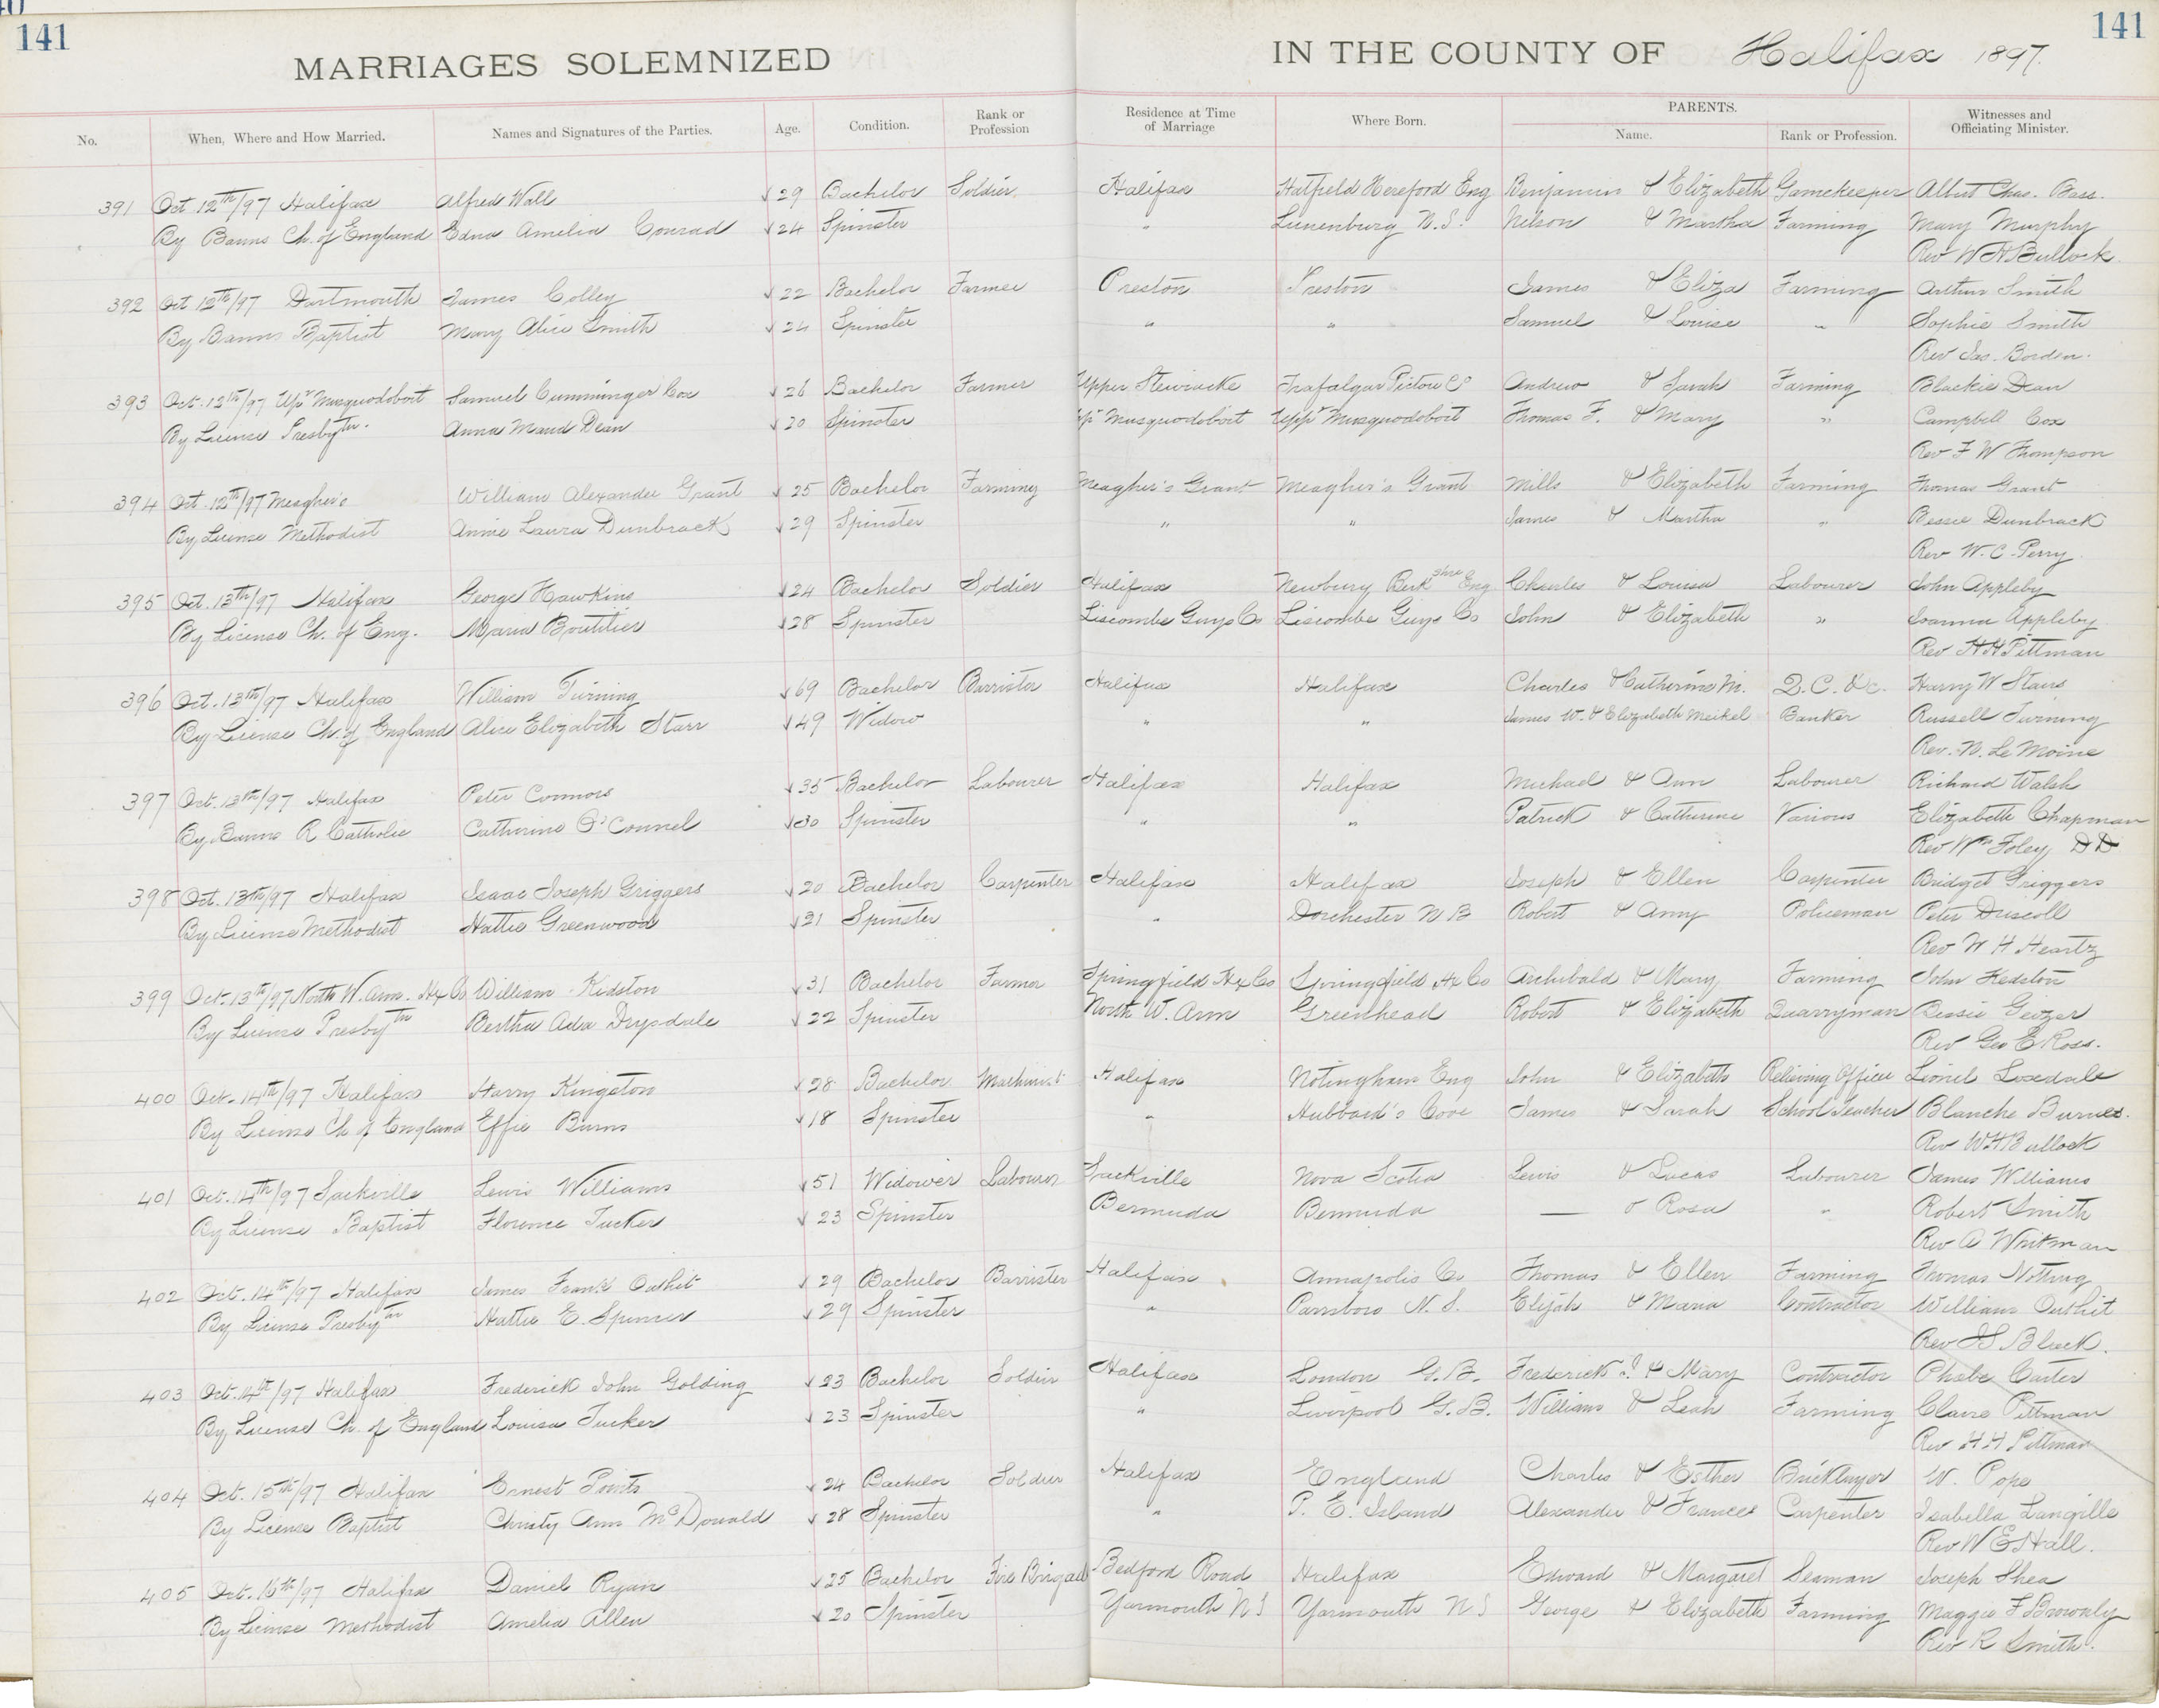 141
141
MARRIAGES SOLEMNIZED IN THE COUNTY OF Halifax 1897.
No. When, Where and How Married. Names and Signatures of the Parties. Age. Condition. Rank or Profession Residence at Time of Marriage Where Born. PARENTS. Name. Rank or Profession. Witnesses and Officiating Minister.
391 Oct 12th/97 Halifax Alfred Wall 29 Bachelor Soldier Halifax Hatfield Hereford Eng Benjamin & Elizabeth Gamekeeper Albert Chas. Bass.
By Banns Ch. of England Edna Amelia Conrad 24 Spinster " Lunenburg N.S. Nelson & Martha Farming Mary Murphy
Rev W H Bullock.
392 Oct 12th/97 Dartmouth James Colley 22 Bachelor Farmer Preston Preston James & Eliza Farming Arthur Smith
By Banns Baptist Mary Alice Smith 24 Spinster " " Samuel & Louise " Sophie Smith
Rev Jas. Borden.
393 Oct. 12th/97 Upr Musquodoboit Samuel Cumminger Cox 26 Bachelor Farmer Upper Stewiacke Trafalgar Pictou Co Andrew & Sarah Farming Blackie Dean
By License Presbytn. Anna Maud Dean 20 Spinster Upr Musquodoboit Uppr Musquodoboit Thomas F. & Mary " Campbell Cox
Rev F W Thompson
394 Oct. 12th/97 Meagher's William Alexander Grant 25 Bachelor Farming Meagher's Grant Meagher's Grant Mills & Elizabeth Farming Thomas Grant
By License Methodist Annie Laura Dunbrack 29 Spinster " " James & Martha " Bessie Dunbrack
Rev W. C. Perry
395 Oct. 13th/97 Halifax George Hawkins 24 Bachelor Soldier Halifax Newbury Berkshire Eng Charles & Louisa Labourer John Appleby
By License Ch. of Eng. Maria Boutilier 28 Spinster Liscombe Guys Co Liscombe Guys Co John & Elizabeth " Joanna Appleby
Rev H H Pittman
396 Oct. 13th/97 Halifax William Twining 69 Bachelor Barrister Halifax Halifax Charles & Catherine M. Q.C. &c. Harry W Stairs
By License Ch. of England Alice Elizabeth Starr 49 Widow " " James W. & Elizabeth Meikel Banker Russell Twining
Rev. N. Le Moine
397 Oct. 13th/97 Halifax Peter Connors 35 Bachelor Labourer Halifax Halifax Michael & Ann Labourer Richard Walsh
By Banns R Catholic Catherine O'Connel 30 Spinster " " Patrick & Catherine Various Elizabeth Chapman
Rev Wm Foley DD
398 Oct. 13th/97 Halifax Isaac Joseph Griggers 20 Bachelor Carpenter Halifax Halifax Joseph & Ellen Carpenter Bridget Griggers
By License Methodist Hattie Greenwood 21 Spinster " Dorchester N B Robert & Amy Policeman Peter Driscoll
Rev W H Heartz
399 Oct. 13th/97 North W. Arm. Hx Co William Kidston 31 Bachelor Farmer Springfield Hx Co Springfield Hx Co Archibald & Mary Farming John Kedston
By License Presbytn Bertha Ada Drysdale 22 Spinster North W. Arm Greenhead Robert & Elizabeth Quarryman Bessie Geizer
Rev Geo E Ross.
400 Oct. 14th/97 Halifax Harry Kingston 28 Bachelor Machinist Halifax Notingham Eng John & Elizabeth Relieving Officer Lionel Loxdale
By License Ch of England Effie Burns 18 Spinster " Hubbard's Cove James & Sarah School Teacher Blanche Burnes.
Rev W.H Bullock
401 Oct. 14th/97 Sackville Lewis Williams 51 Widower Labourer Sackville Nova Scotia Lewis & Lucas Labourer James Williams
By License Baptist Florence Tucker 23 Spinster Bermuda Bermuda — & Rosa " Robert Smith
Rev A Whitman
402 Oct. 14th/97 Halifax James Frank Outhit 29 Bachelor Barrister Halifax Annapolis Co Thomas & Ellen Farming Thomas Notting
By License Presbytn Hattie E. Spencer 29 Spinster " Parrsboro N. S. Elijah & Maria Contractor William Outhit
Rev J S Black.
403 Oct. 14th/97 Halifax Frederick John Golding 23 Bachelor Soldier Halifax London G.B. Frederick J. & Mary Contractor Phebe Carter
By License Ch. of England Louisa Tucker 23 Spinster " Liverpool G.B. William & Leah Farming Claire Pittman
Rev H H Pittman
404 Oct. 15th/97 Halifax Ernest Points 24 Bachelor Soldier Halifax England Charles & Esther Bricklayer W. Pope
By License Baptist Christy Ann McDonald 28 Spinster " P. E. Island Alexander & Frances Carpenter Isabella Langille
Rev W E Hall.
405 Oct. 16th/97 Halifax Daniel Ryan 25 Bachelor Fire Brigade Bedford Road Halifax Edward & Margaret Seaman Joseph Shea
By License Methodist Amelia Allen 20 Spinster Yarmouth N S Yarmouth N S George & Elizabeth Farming Maggie F Brownly
Rev R Smith.